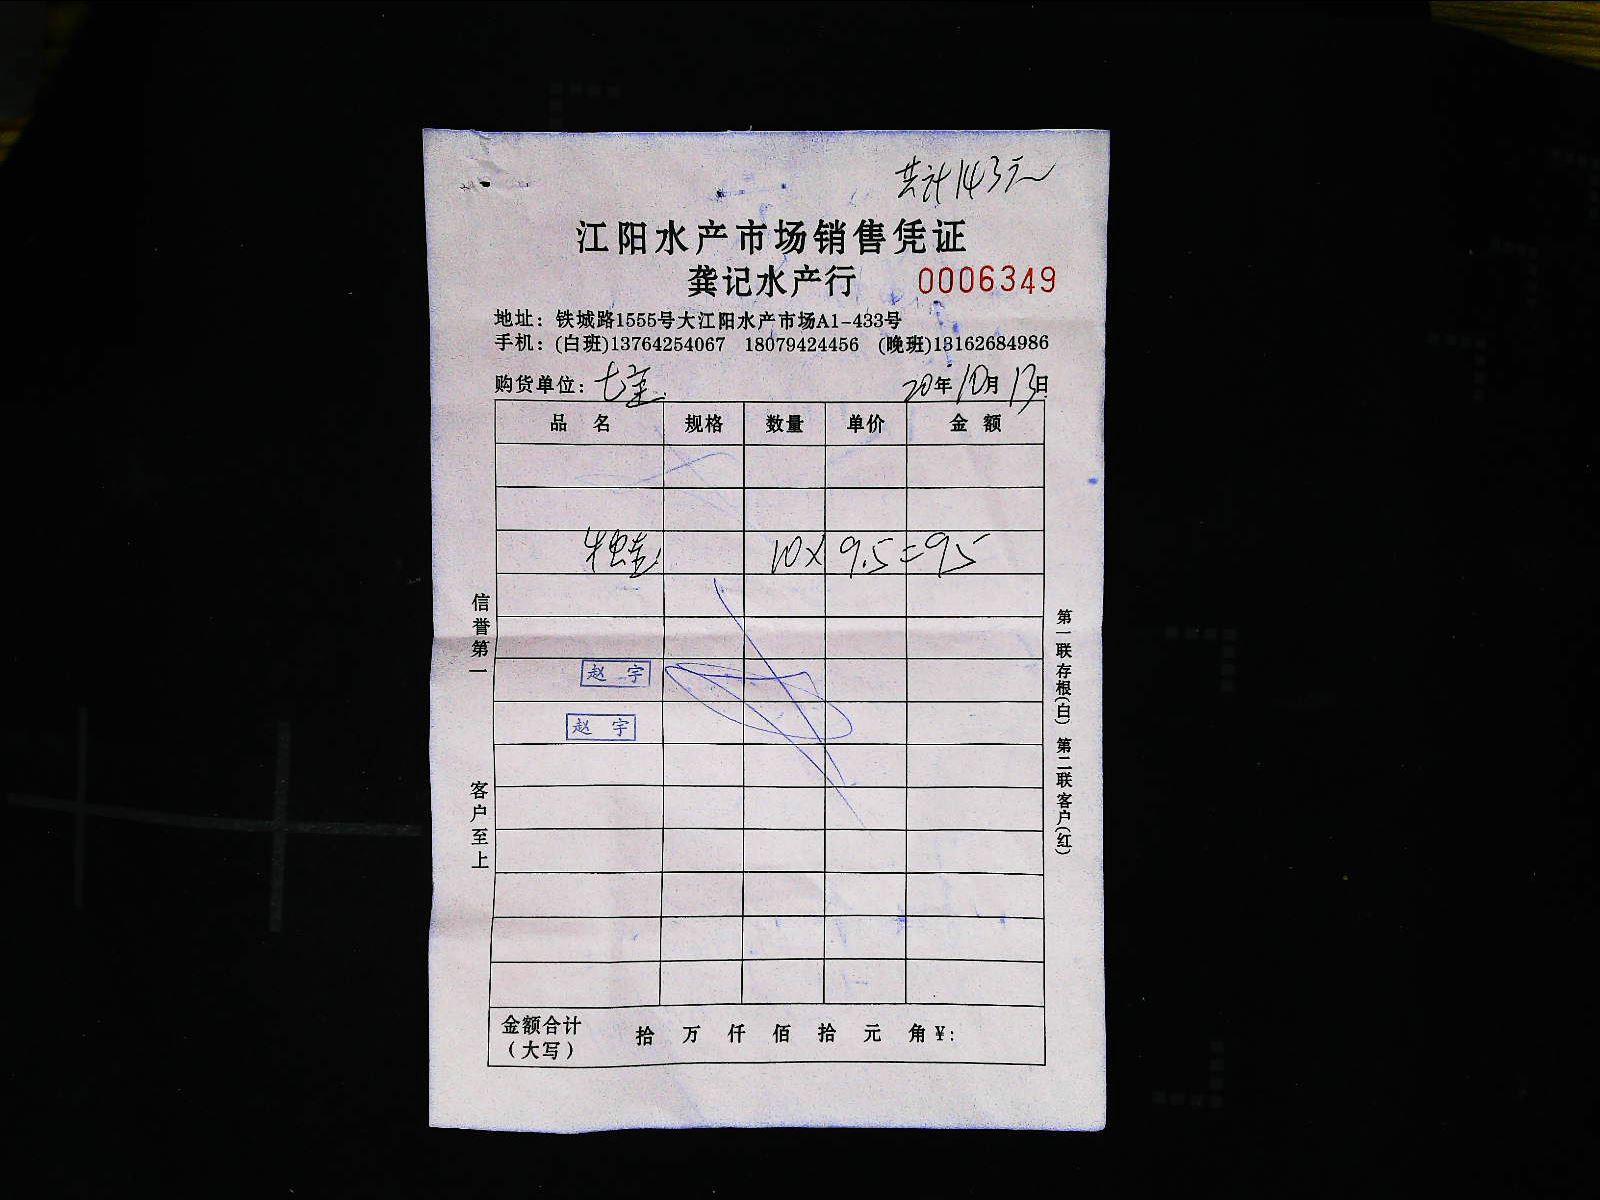 共计143元
江阳水产市场销售凭证
龚记水产行 0006349
地址：铁城路1555号大江阳水产市场A1-433号
手机：(白班)13764254067 18079424456 (晚班)13162684986
购货单位： 20年10月13日
品 名 规格 数量 单价 金 额
10×9.5=95
赵 宇
赵 宇
信誉第一
客户至上
第一联存根(白) 第二联客户(红)
金额合计 拾 万 仟 佰 拾 元 角 ¥:
(大写)